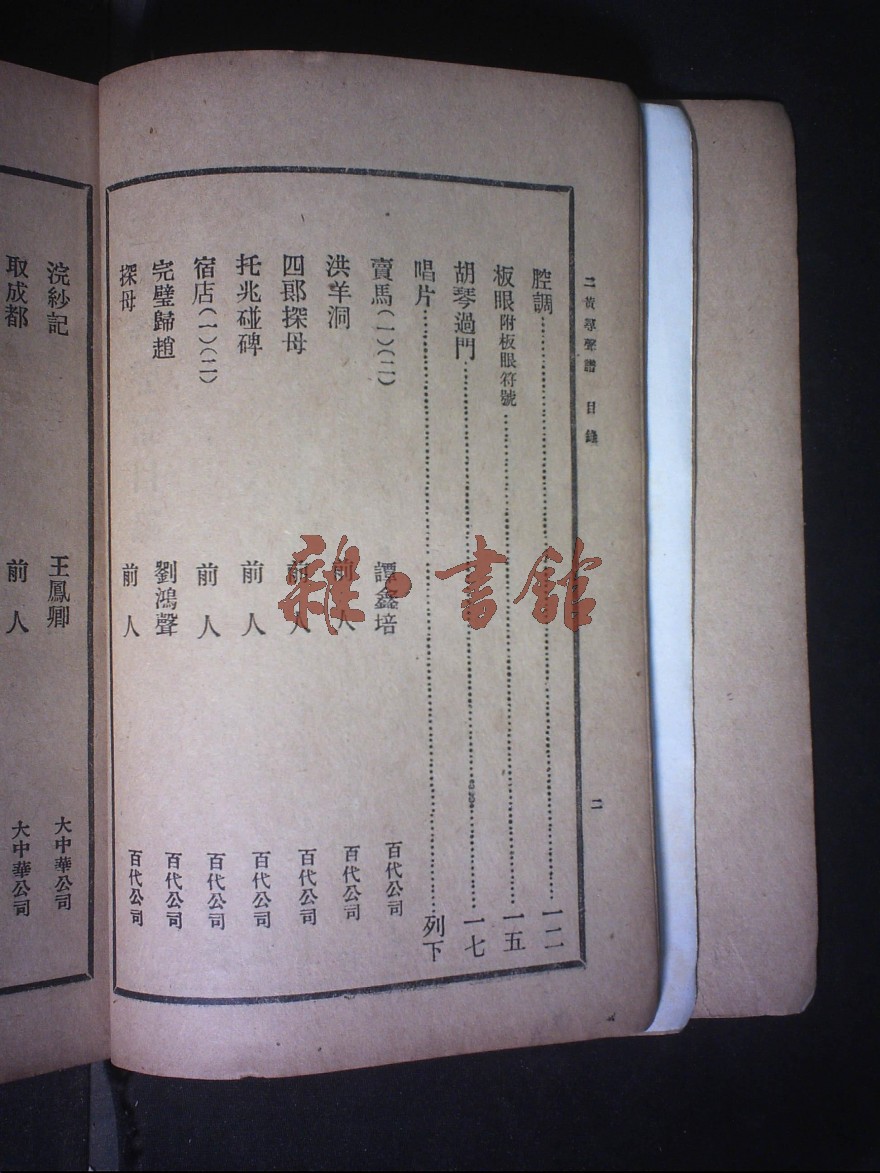 二黃尋聲譜 目錄 二
腔調 一二
板眼附板眼符號 一五
胡琴過門 一七
唱片 列下
賣馬(一)(二) 譚鑫培 百代公司
洪羊洞 前人 百代公司
四郎探母 前人 百代公司
托兆碰碑 前人 百代公司
宿店(一)(二) 前人 百代公司
完璧歸趙 劉鴻聲 百代公司
探母 前人 百代公司
浣紗記 王鳳卿 大中華公司
取成都 前人 大中華公司
雜·書館